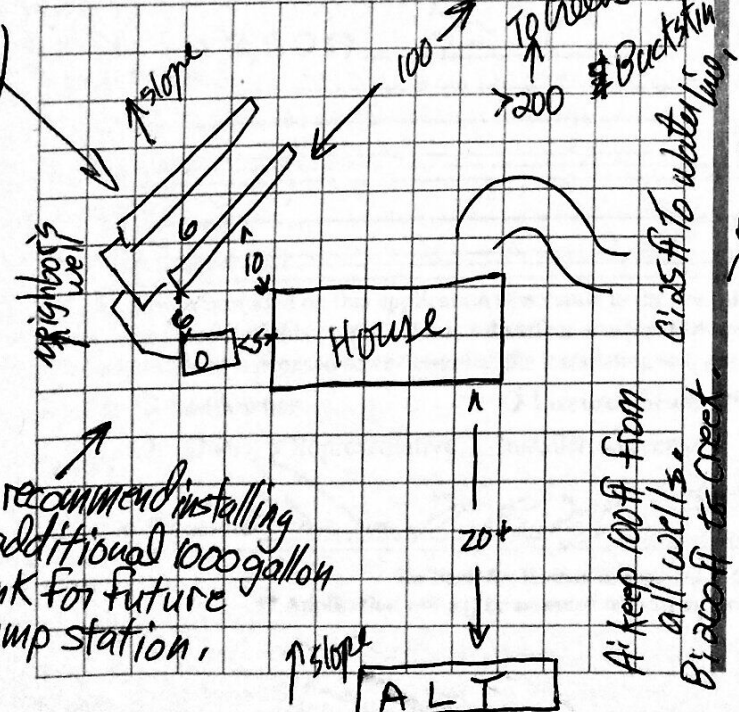 slope
100
To
>200
Buckskin
neighbors
well
6
10
6
D
<5>
House
recommend installing
additional 1000 gallon
for future
station.
20+
slope
ALT
A: keep 100 ft from
all wells.
B: 200 ft to creek
C: 25 ft To water line,